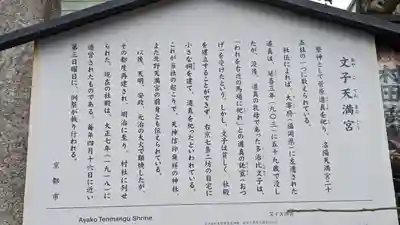 文子天満宮
祭神として菅原道真を祀り、洛陽天満宮二十
五社の一つに数えられている。
社伝によれば、大宰府(福岡県)に左遷された
道真は、延喜三年(九〇三)に五十九歳で没し
たが、没後、道真の乳母であった多治比文子は、
「われを右近の馬場に祀れ」との道真の託宣(おつ
げ)を受けたという。しかし、文子は貧しく、社殿
を建立することができず、右京七条二坊の自宅に
小さな祠を建て、道真を祀ったといわれている。
これが当社の起こりで、天神信仰発祥の神社、
また北野天満宮の前身とも伝えられている。
以後、天明、安政、元治の大火で類焼したが、
その都度再建され、明治に至り、村社に列せ
られた。現在の社殿は、大正七年(一九一八)に
造営されたものである。毎年四月十六日に近い
第三日曜日に、例祭が執り行われる。
京都市
Ayako Tenmangu Shrine